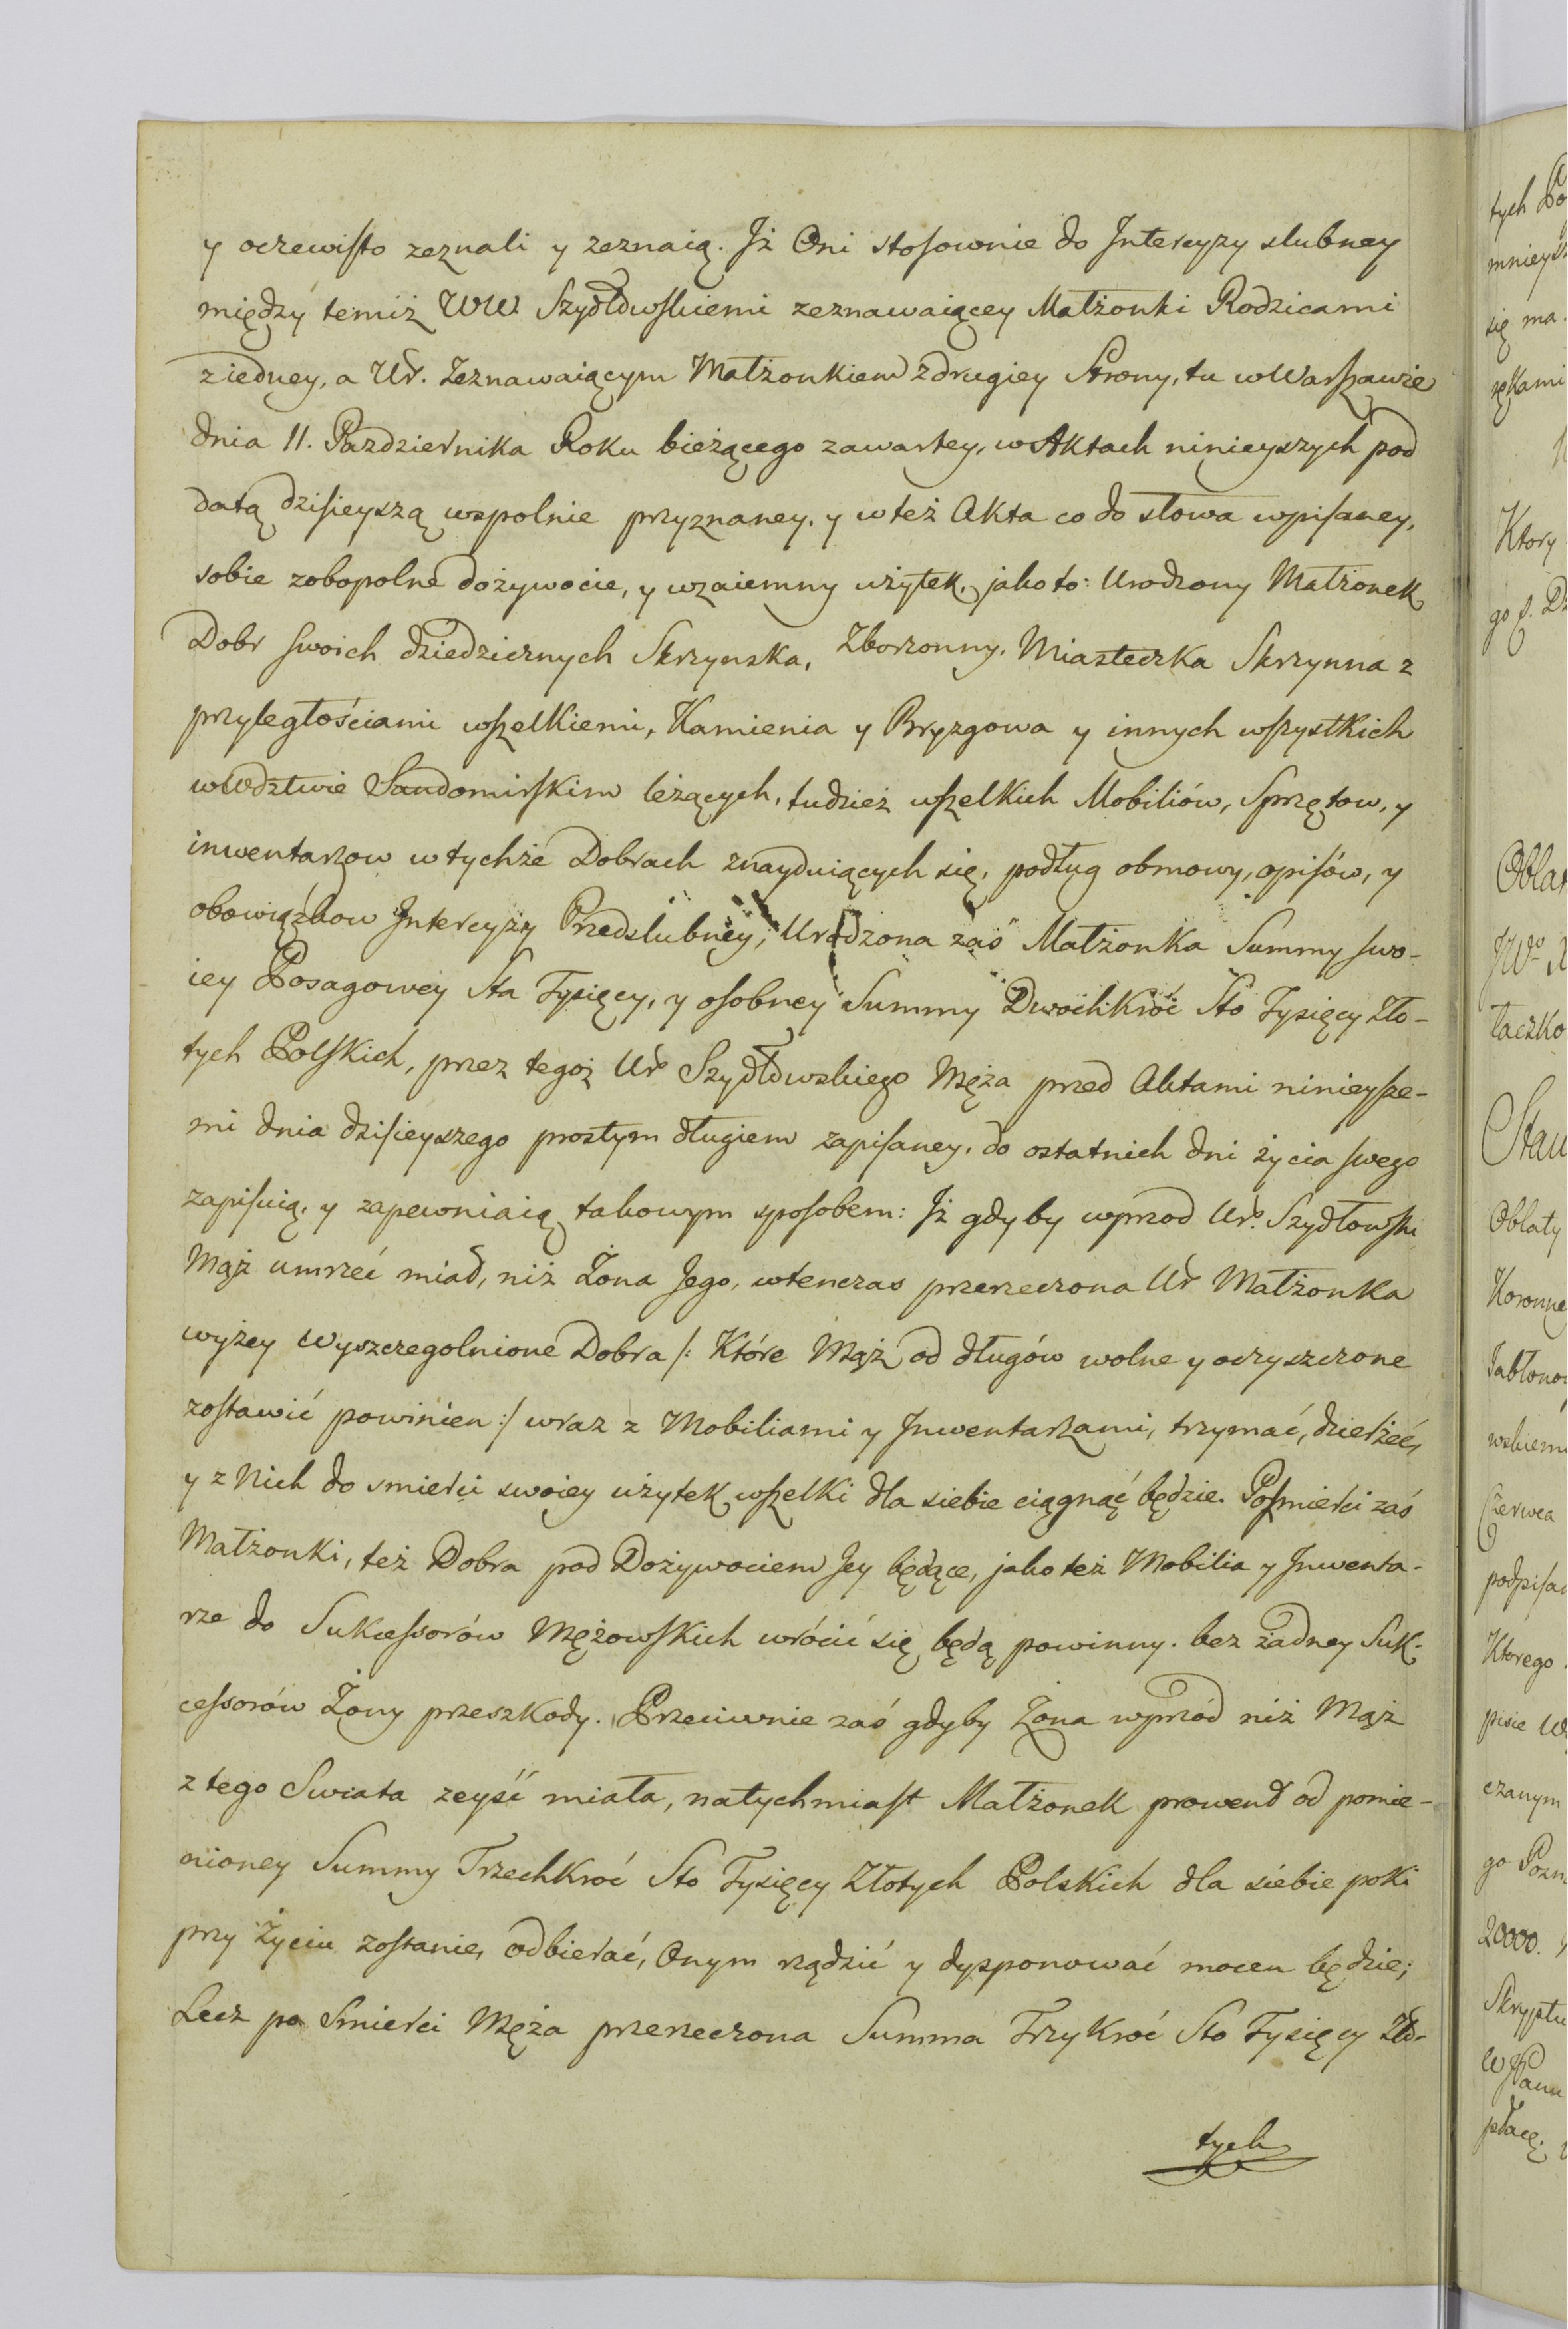 y oczewisto zeznali y zeznaią. Jż Oni stosownie do Jntercyzy slubney
między temiż WW. Szydłowskiemi zeznawaiącey Małżonki Rodzicami
z iedney, a Ur. Zeznawaiącym Małżonkiem z drugiey Strony, tu w Warszawie
dnia 11. Pazdziernika Roku bieżącego zawartey, w Aktach ninieyszych pod
datą dzisieyszą wspolnie przyznaney, y w też Akta co do słowa wpisaney,
sobie zobopolne dożywocie, y wzaiemny użytek, jako to: Urodzony Małżonek
Dobr swoich dziedzicznych Skrzynska, Zborzonny, Miasteczka Skrzynna z
przyległościami wszelkiemi, Kamienia y Bryzgowa y innych wszystkich
w Wdztwie Sandomirskim leżących, tudzież wszelkich Mobiliów, Sprzętow, y
inwentarzow w tychże Dobrach znayduiących się, podług obmowy, opisów, y
obowiązkow Jntercyzy Przedslubney; Urodzona zaś Małżonka Summy swo-
iey Posagowey Sta Tysięcy, y osobney Summy Dwochkroć Sto Tysięcy Zło-
tych Polskich, przez tegoż Ur. Szydłowskiego Męża przed Aktami ninieysze-
mi dnia dzisieyszego prostym długiem zapisaney, do ostatnich dni życia swego
zapisuią, y zapewniaią takowym sposobem: Jż gdyby wprzod Ur. Szydłowski
Mąż umrzeć miał, niż Żona Jego, wtenczas przerzeczona Ur. Małżonka
wyżey wyszczegolnione Dobra /: Które Mąż od długów wolne y oczyszczone
zostawić powinien :/ wraz z Mobiliami y Jnwentarzami, trzymać, dzierżeć,
y z Nich do smierci swoiey użytek wszelki dla siebie ciągnąć będzie. Po smierci zaś
Małżonki, też Dobra pod Dożywociem Jey będące, jako też Mobilia y Jnwenta-
rze do Sukcessorów Mężowskich wrócić się będą powinny, bez żadney Suk-
cessorów Żony przeszkody. Przeciwnie zaś gdyby Żona wprzód niż Mąż
z tego Swiata zeyść miała, natychmiast Małżonek prowent od pomie-
nioney Summy Trzechkroć Sto Tysięcy Złotych Polskich dla siebie poki
przy życiu zostanie, odbierać, Onym rządzić y dysponować mocen będzie;
Lecz po Smierci Męża przerzeczona Summa Trzykroć Sto Tysięcy Zło-
tych
tych
mnieysz
się ma.
rękami
Ktory
Oblat
taczko
Stan
Oblaty
Koronne
wskiem
Czerwca
podpisa
Ktorego
pisie
czanym
20000.
Skryptu
płacę.